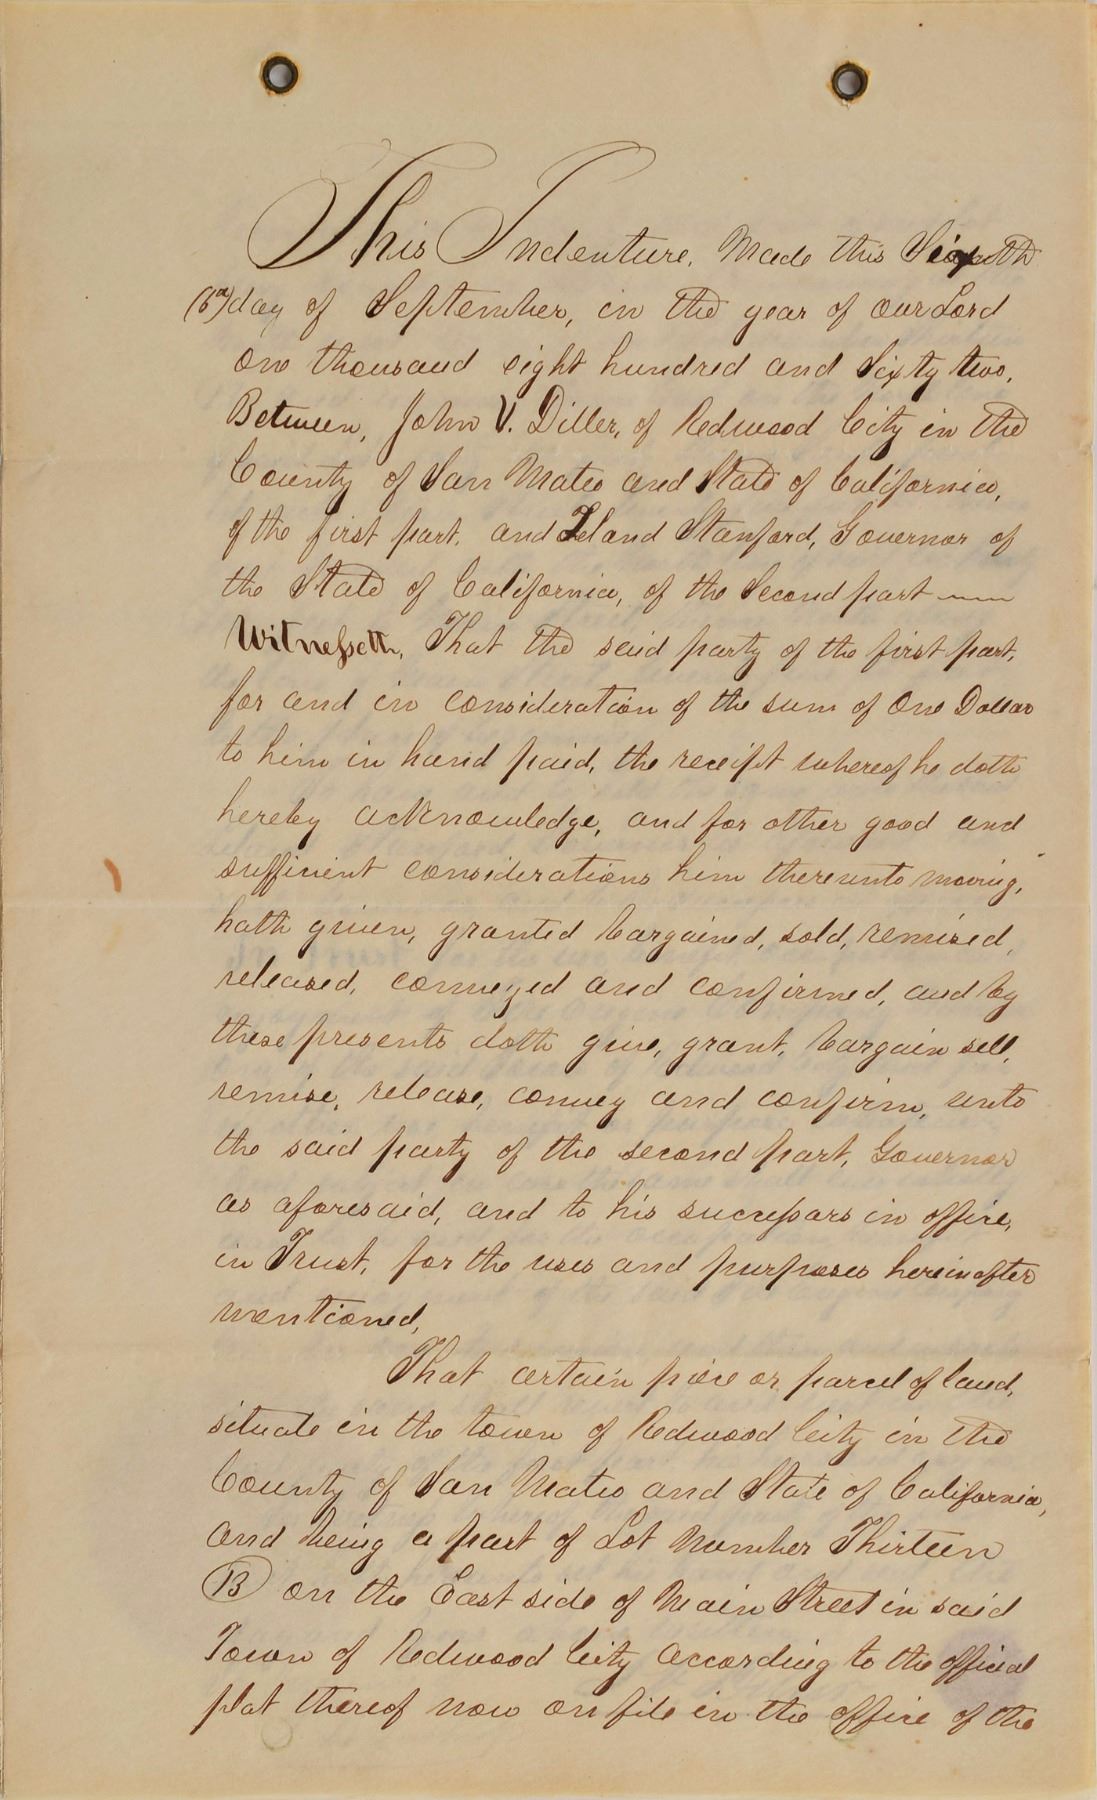 This Indenture, Made this Sixth
(6th) day of September, in the year of our Lord
one thousand eight hundred and Sixty two,
Between, John V. Diller, of Redwood City in the
County of San Mateo and State of California,
of the first part, and Leland Stanford, Governor of
the State of California, of the Second part
Witnesseth, That the said party of the first part,
for and in consideration of the sum of One Dollar
to him in hand paid, the receipt whereof he doth
hereby acknowledge, and for other good and
sufficient considerations him thereunto moving,
hath given, granted bargained, sold, remised,
released, conveyed and confirmed, and by
these presents doth give, grant, bargain sell,
remise, release, convey and confirm, unto
the said party of the second part, Governor
as aforesaid, and to his successors in office,
in Trust, for the uses and purposes hereinafter
mentioned,
That certain piece or parcel of land,
situate in the town of Redwood City in the
County of San Mateo and State of California,
and being a part of Lot Number Thirteen
13 on the East side of Main Street in said
Town of Redwood City according to the official
plat thereof now on file in the office of the